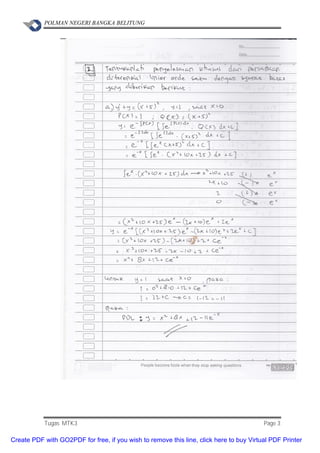 POLMAN NEGERI BANGKA BELITUNG
No.
Date
1. Tentukanlah penyelesaian khusus dari persamaan
diferensial linier orde satu dengan syarat batas
yang diberikan berikut
a) y' + y = (x+5)² , y=1 , saat x=0
P(x) = 1 ; Q(x) = (x+5)²
= e⁻ˣ [∫eˣ (x+5)² dx + c]
= e⁻ˣ [∫eˣ . (x²+10x+25) dx + c]
∫eˣ . (x²+10x+25) dx → x²+10x+25 (+) eˣ
2x+10 (-) eˣ
2 (+) eˣ
0 (-) eˣ
= (x²+10x+25) eˣ - (2x+10)eˣ + 2eˣ
y = e⁻ˣ [(x²+10x+25)eˣ - (2x+10)eˣ + 2eˣ + c]
= (x²+10x+25) - (2x+10) + 2 + ce⁻ˣ
= x²+10x+25 - 2x - 10 + 2 + ce⁻ˣ
= x² + 8x + 12 + ce⁻ˣ
untuk y=1 saat x=0 maka :
1 = 12+c → c = 1-12 = -11
maka :
PDL : y = x² + 8x + 12 - 11e⁻ˣ
People become hook when they stop asking questions
Tugas MTK3 Page 3
Create PDF with GO2PDF for free, if you wish to remove this line, click here to buy Virtual PDF Printer